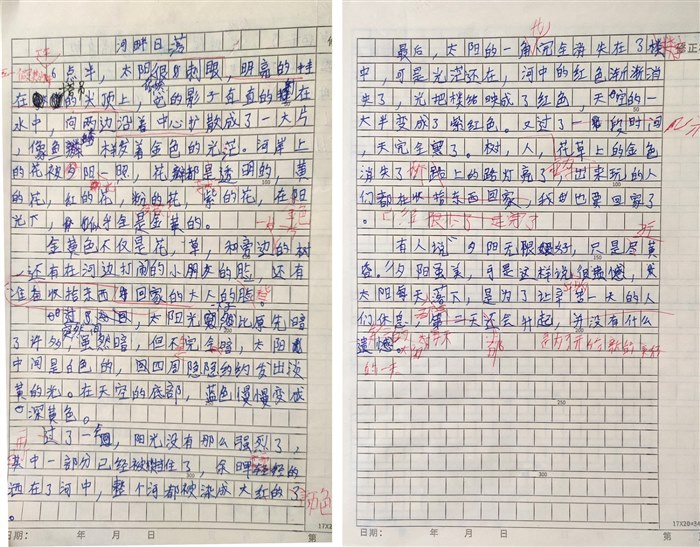 河畔日落
6点半，太阳很刺眼，明亮的挂
在的头顶上，它的影子直直的
水中，向两边沿着中心扩散成了一大片
，像鱼鳞一样发着金色的光茫。河岸上
的花被夕阳一照，花瓣都是透明的，黄
的花，红的花，粉的花，紫的花，在阳
光下，似乎全是金黄的。
金黄色不仅是花，草，和旁边的树
，还有在河边打闹的小朋友的脸，还有
准备收拾东西回家的大人的脸
过了，太阳光比原先暗
了许多，虽然暗，但不完全暗，太阳
中间是白色的，四周隐隐约约发出淡
黄的光。在天空的底部，蓝色慢慢变成
深黄色。
过了一，阳光没有那么强烈了，
其中一部分已经被挡住了，余晖轻轻的
洒在了河中，整个河都被染成大红的了
。
日期： 年 月 日
17X20=34
第
最后，太阳的一角完全消失在了楼
中，可是光茫还在，河中的红色渐渐消
失了，光把楼给映成了红色，天空的一
大半变成了紫红色。又过了一段时间
，天完全黑了。树，人，花草上的金色
消失了，路上的路灯亮了，出来玩的人
们都在收拾东西回家，我也要回家了
。
有人说“夕阳无限好，只是尽黄
昏。”夕阳虽美，可是这样说很遗憾，
太阳每天落下，是为了让辛苦一天的人
们休息，第二天还会升起，并没有什么
遗憾
的一步
日期： 年 月 日
第
17X20=34